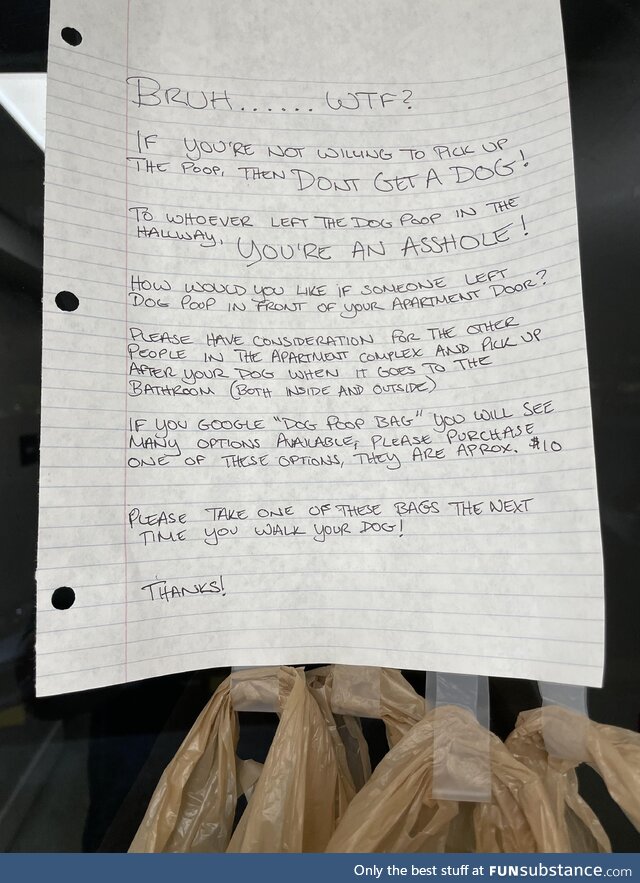 BRUH...... WTF?
IF YOU'RE NOT WILLING TO PICK UP
THE POOP, THEN DONT GET A DOG!
TO WHOEVER LEFT THE DOG POOP IN THE
HALLWAY, YOU'RE AN ASSHOLE!
HOW WOULD YOU LIKE IF SOMEONE LEFT
DOG POOP IN FRONT OF YOUR APARTMENT DOOR?
PLEASE HAVE CONSIDERATION FOR THE OTHER
PEOPLE IN THE APARTMENT COMPLEX AND PICK UP
AFTER YOUR DOG WHEN IT GOES TO THE
BATHROOM (BOTH INSIDE AND OUTSIDE)
IF YOU GOOGLE "DOG POOP BAG" YOU WILL SEE
MANY OPTIONS AVAILABLE, PLEASE PURCHASE
ONE OF THESE OPTIONS, THEY ARE APROX. $10
PLEASE TAKE ONE OF THESE BAGS THE NEXT
TIME YOU WALK YOUR DOG!
THANKS!
Only the best stuff at FUNsubstance.com